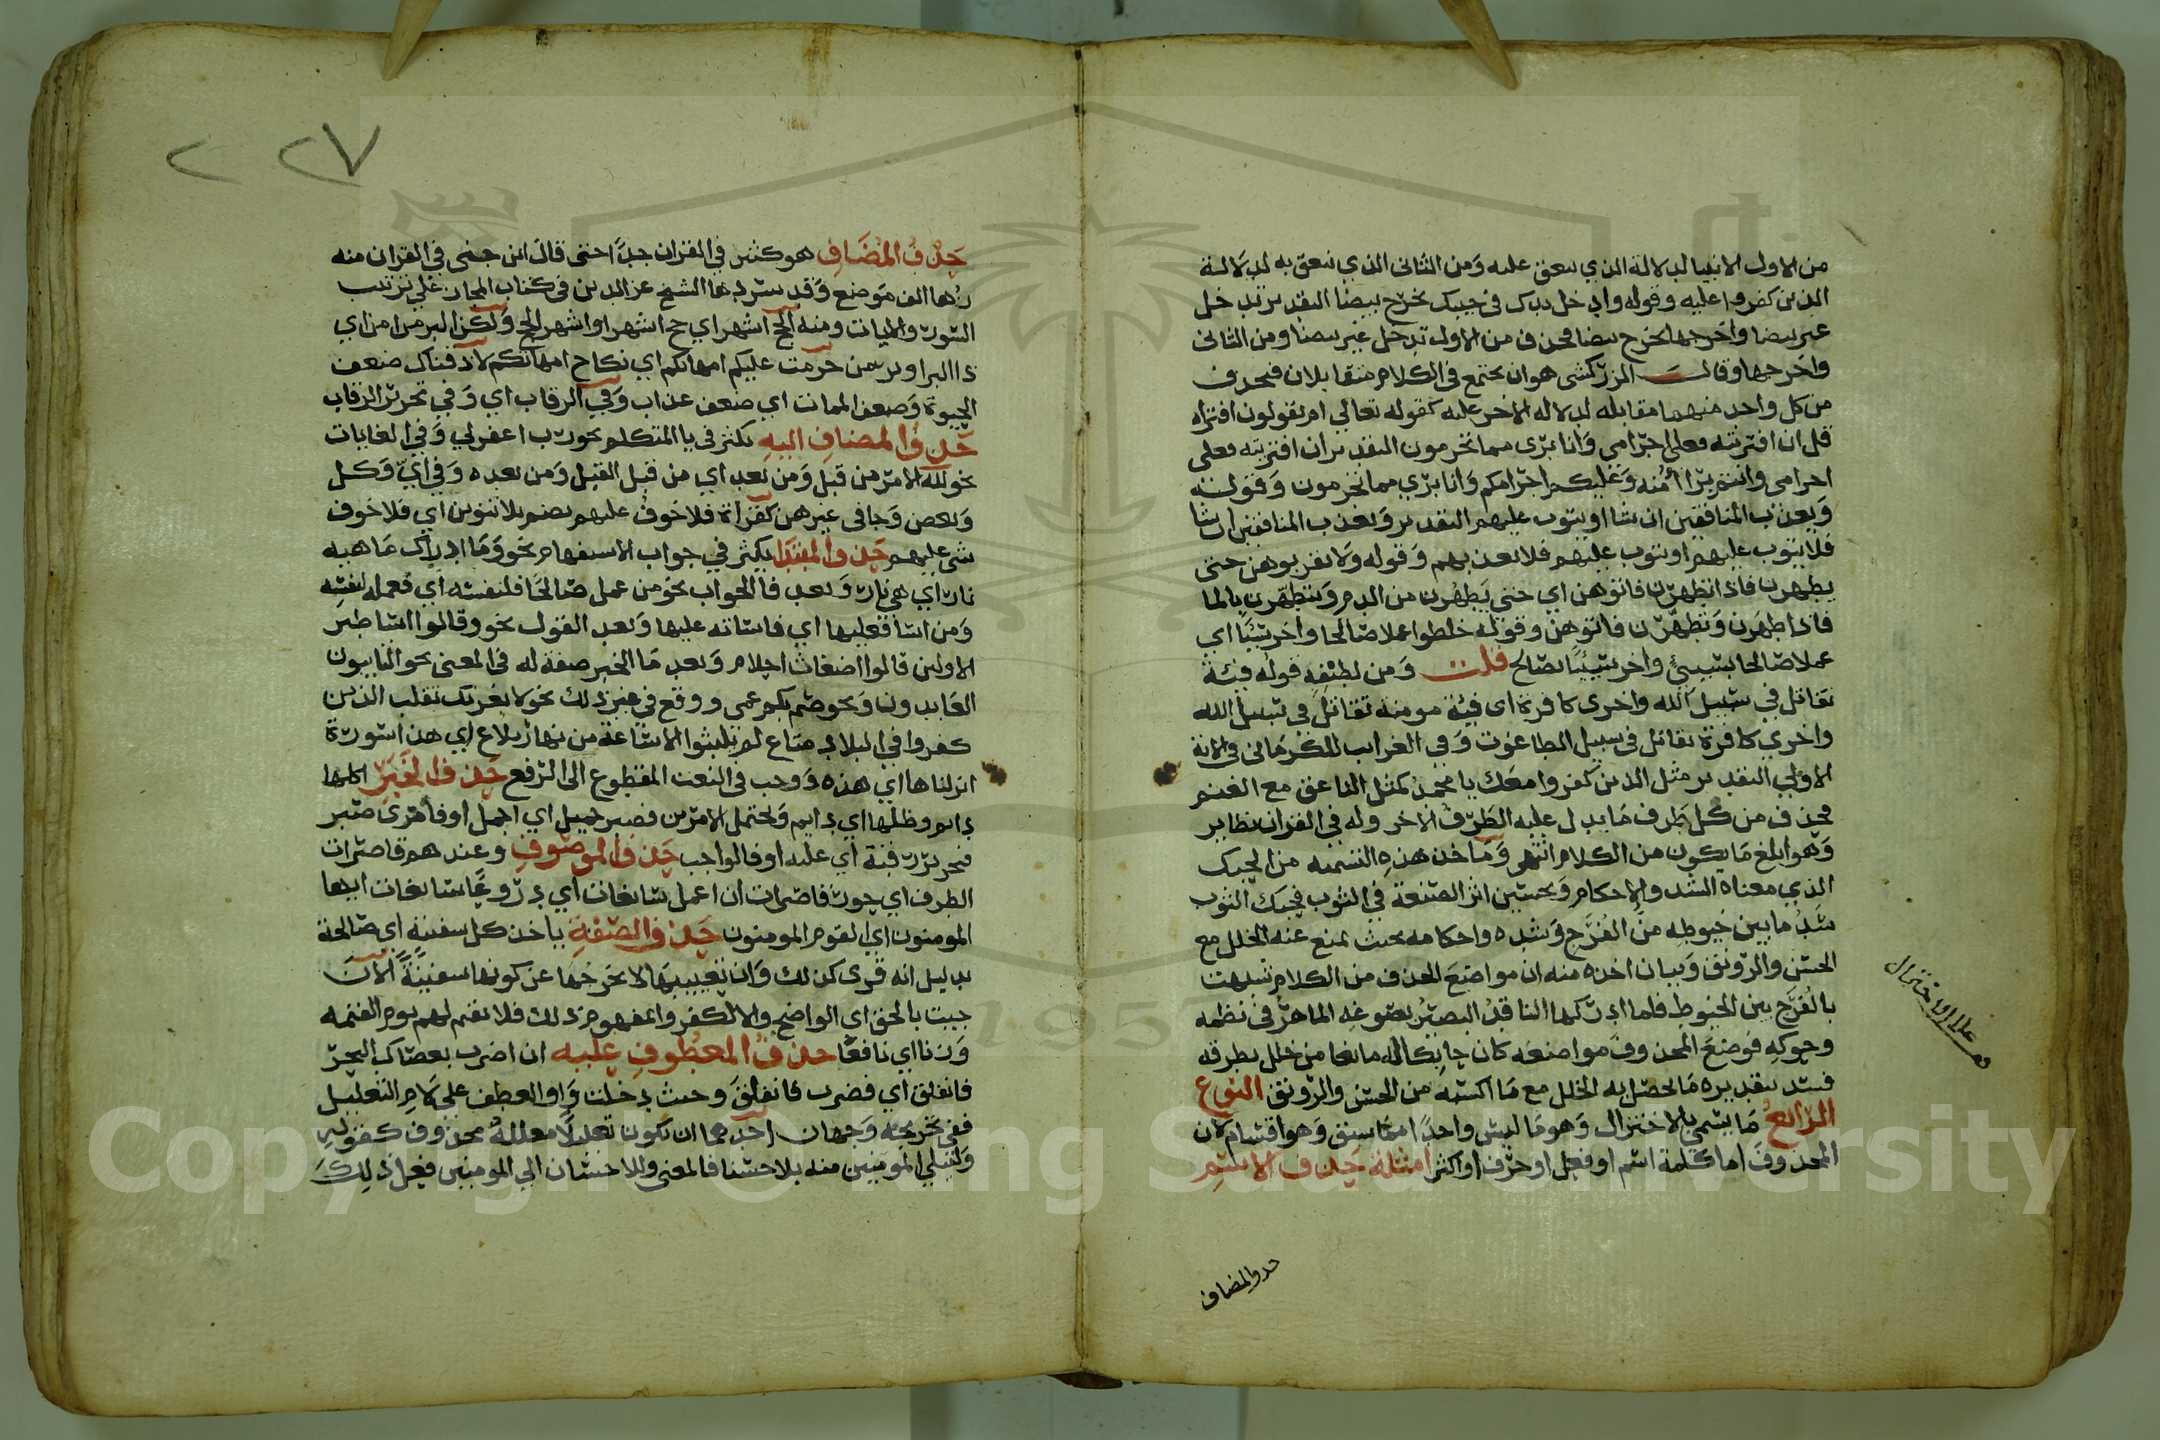 من الاول الانبيا لدلالة الذي ينعق عليه ومن الثانى الذي ينعق به لدلالة
الذين كفروا عليه وقوله وادخل يدك في جيبك تخرج بيضا التقدير تدخل
غير بيضا واخرجها تخرج بيضا فحذف من الاول تدخل غير بيضا ومن الثانى
واخرجها وقال الزركشى هو ان يجتمع في الكلام متقابلان فيحذف
من كل واحد منهما مقابله لدلاله الاخر عليه كقوله تعالي ام يقولون افتراه
قل ان افتريته فعلى اجرامي وانا برى مما تجرمون التقدير ان افتريته فعلى
اجرامى وانتم برا امنه وعليكم اجرامكم وانا بري مما تجرمون وقوله
ويعذب المنافقين ان شا او يتوب عليهم التقدير ويعذب المنافقين ان شا
فلا يتوب عليهم او يتوب عليهم فلا يعذبهم وقوله ولا تقربوهن حتى
يطهرن فاذا تطهرن فاتوهن اي حتى يطهرن من الدم ويتطهرن بالما
فاذا طهرن وتطهرن فاتوهن وقوله خلطوا عملا صالحا واخر سيئا اي
عملا صالحا بسيئ واخر سيئا بصالح قلت ومن لطيفه قوله فئة
تقاتل في سبيل الله واخرى كافرة اى فئة مومنة تقاتل في سبيل الله
واخري كافرة تقاتل في سبيل الطاغوت وفي الغرايب للكرمانى في الاية
الاولي التقدير مثل الذين كفروا معك يا محمد كمثل الناعق مع الغنم
فحذف من كل طرف ما يدل عليه الطرف الاخر وله في القران نظاير
وهو ابلغ ما يكون من الكلام انتهى وماخذ هذه التسمية من الحبك
الذي معناه الشد والاحكام وتحسين اثر الصنعة في الثوب فحبك الثوب
سد ما بين خيوطه من الفرج وشده واحكامه بحيث يمنع عنه الخلل مع
الحسن والرونق وبيان اخذه منه ان مواضع الحذف من الكلام شبهت
بالفرج بين الخيوط فلما ادركها الناقد البصير بصوغه الماهر في نظمه
وحوكه فوضع المحذوف مواضعه كان حابكا له مانعا من خلل يطرقه
فسد بتقديره ما يحصل به الخلل مع ما اكسبه من الحسن والرونق النوع
الرابع ما يسمي بالاختزال وهو ما ليس واحدا مما سبق وهو اقسام لان
المحذوف اما كلمة اسم او فعل او حرف او اكثر امثلة حذف الاسم
حذف المضاف
حذف المضاف هو كثير في القران جدا حتى قال ابن جنى في القران منه
زها الف موضع وقد سردها الشيخ عز الدين في كتاب المجاز على ترتيب
السور والايات ومنه الحج اشهر اي حج اشهر او اشهر الحج ولكن البر من امن اي
ذا البر او بر من حرمت عليكم امهاتكم اي نكاح امهاتكم لاذقناك ضعف
الحيوة وضعف الممات اي ضعف عذاب وفي الرقاب اي وفي تحرير الرقاب
حذف المضاف اليه يكثر في يا المتكلم نحو رب اغفر لي وفي الغايات
نحو لله الامر من قبل ومن بعد اي من قبل الغلب ومن بعده وفي اي وكل
وبعض وجا في غيرهن كقراة فلا خوف عليهم بضم بلا تنوين اي فلا خوف
شى عليهم حذف المبتدا يكثر في جواب الاستفهام نحو وما ادراك ما هيه
نار اي هي نار وبعد فا الجواب نحو من عمل صالحا فلنفسه اي فعمله لنفسه
ومن اسا فعليها اي فاساته عليها وبعد القول نحو وقالوا اساطير
الاولين قالوا اضغاث احلام وبعد ما الخبر صفة له في المعنى نحو التايبون
العابدون ونحو صم بكم عمى ووقع في غير ذلك نحو لا يغرنك تقلب الذين
كفروا في البلاد متاع لم يلبثوا الا ساعة من نهار بلاغ اي هذا سورة
انزلناها اي هذه ووجب في النعت المقطوع الى الرفع حذف الخبر اكلها
دايم وظلها اي دايم ويحتمل الامرين فصبر جميل اي اجمل او فامرى صبر
فتحرير رقبة اي عليه او فالواجب حذف الموصوف وعندهم قاصرات
الطرف اي حور قاصرات ان اعمل سابغات اي دروعا سابغات ايها
المومنون اي القوم المومنون حذف الصفة ياخذ كل سفينة اي صالحة
بدليل انه قرى كذلك وان تعييبها لا يخرجها عن كونها سفينة الان
جيت بالحق اي الواضح والا لكفروا بمفهوم ذلك فلا نقيم لهم يوم القيمه
وزنا اي نافعا حذف المعطوف عليه ان اضرب بعصاك البحر
فانفلق اي فضرب فانفلق وحيث دخلت واو العطف على لام التعليل
ففي تخريجه وجهان احدهما ان يكون تعليلا معلله محذوف كقوله
وليبلي المومنين منه بلا حسنا فالمعنى وللاحسان الي المومنين فعل ذلك
٢٢٧
Copyright © King Saud University
1957